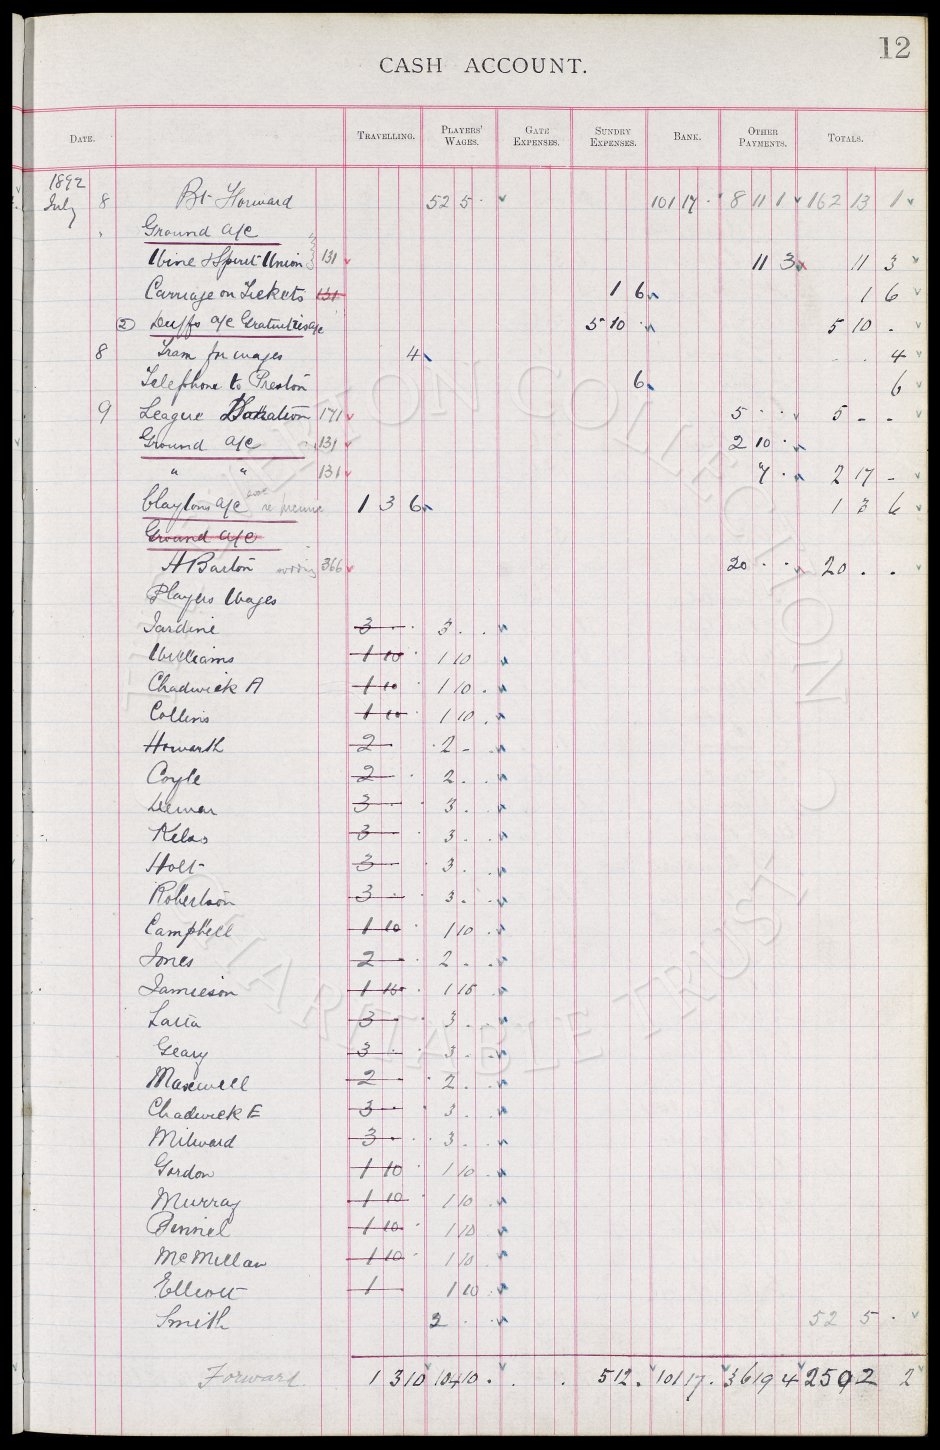 12
CASH ACCOUNT.
DATE. TRAVELLING. PLAYERS' WAGES. GATE EXPENSES. SUNDRY EXPENSES. BANK. OTHER PAYMENTS. TOTALS.
1892
July 8 Bt Forward 52 5 . 101 17 . 8 11 1 162 13 1
Ground a/c
Wine & Spirit Union 131 11 3 11 3
Carriage on Tickets 131 1 6 1 6
(2) Duffs a/c Gratuities a/c 5 10 . 5 10 .
8 Tram for wages 4 . . 4
Telephone to Preston 6 6
9 League Donation 171 5 . . 5 - -
Ground a/c 131 2 10 .
" " 131 7 . 2 17 -
Claytons a/c 1 3 6 1 3 6
Ground a/c
H Barton 366 20 . . 20 . .
Players Wages
Jardine 3 . . 3 . .
Williams 1 10 . 1 10
Chadwick A 1 10 . 1 10 .
Collins 1 10 . 1 10 .
Howarth 2 - . 2 - .
Coyle 2 - . 2 . .
Dewar 3 . . 3 . .
Kelso 3 - . 3 . .
Holt 3 - . 3 . .
Robertson 3 . . 3 . .
Campbell 1 10 . 1 10 .
Jones 2 . . 2 . .
Jamieson 1 15 . 1 15 .
Latta 3 . . 3 . .
Geary 3 . . 3 . .
Maxwell 2 . . 2 . .
Chadwick E 3 . . 3 . .
Milward 3 . . 3 . .
Gordon 1 10 . 1 10 .
Murray 1 10 . 1 10 .
Pinnel 1 10 . 1 10 .
McMillan 1 10 . 1 10 .
Elliott 1 1 10 .
Smith 2 . . 52 5 .
Forward 1 3 10 104 10 . . . 5 12 . 101 17 . 36 19 4 250 2 2
THE EVERTON COLLECTION
CHARITABLE TRUST